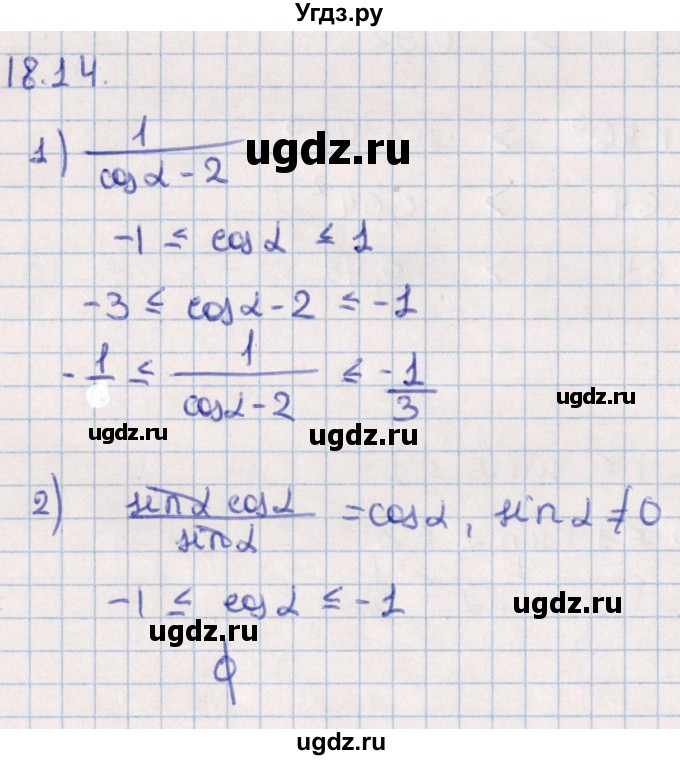 Угдз.ру
18.14.
1) 1/(cosα - 2) ugdz.ru
-1 ≤ cosα ≤ 1
-3 ≤ cosα - 2 ≤ -1
-1/ ≤ 1/(cosα - 2) ≤ -1/3
ugdz.ru
ugdz.ru
ugdz.ru
2) sinα cosα / sinα = cosα, sinα ≠ 0
-1 ≤ cosα ≤ -1
ugdz.ru
ugdz.ru
ϕ
ugdz.ru